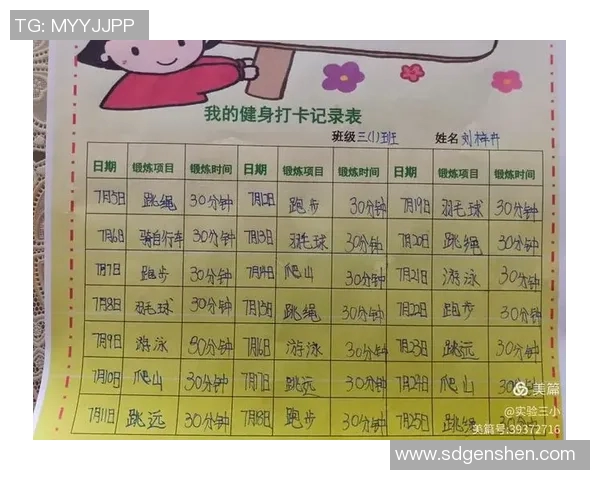 TG: MYYJJPP
我的健身打卡记录表
班级 三(1)班 姓名 刘梓卉
日期 锻炼项目 锻炼时间 日期 锻炼项目 锻炼时间 日期 锻炼项目 锻炼时间
7月5日 跳绳 30分钟 7月12日 跑步 30分钟 7月19日 羽毛球 30分钟
7月6日 骑自行车 30分钟 7月13日 羽毛球 30分钟 7月20日 跳绳 30分钟
7月7日 跑步 30分钟 7月14日 爬山 30分钟 7月21日 游泳 30分钟
7月8日 羽毛球 30分钟 7月15日 跳绳 30分钟 7月22日 跑步 30分钟
7月9日 游泳 30分钟 7月16日 游泳 30分钟 7月23日 跳远 30分钟
7月10日 爬山 30分钟 7月17日 跳远 30分钟 7月24日 爬山 30分钟
7月11日 跳远 30分钟 7月18日 跑步 30分钟 7月25日 跳绳 30分钟
美篇
@实验三小
美篇号:39372716
www.sdgenshen.com